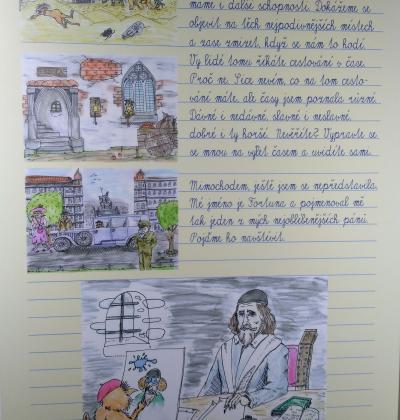 mámi i další schopnosti. Dokážeme se
objevit na těch nejpodivnějších místech
a zase zmizet, když se nám to hodí.
Vy lidé tomu říkáte cestování v čase.
Proč ne. Sice nevím, co na tom cesto-
vání máte, ale časy jsem poznala různé.
Dávné i nedávné, slavné i neslavné,
dobré i ty horší. Nevěříte? Vypravte se
se mnou na výlet časem a uvidíte sami.
Mimochodem, ještě jsem se nepředstavila.
Mé jméno je Fortuna a pojmenoval mě
tak jeden z mých nejoblíbenějších pánů.
Pojďme ho navštívit.